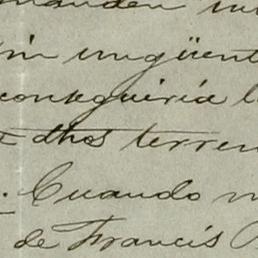 manden
sin ungüent
conseguiría l
a dhos terren
. Cuando n
de Francis